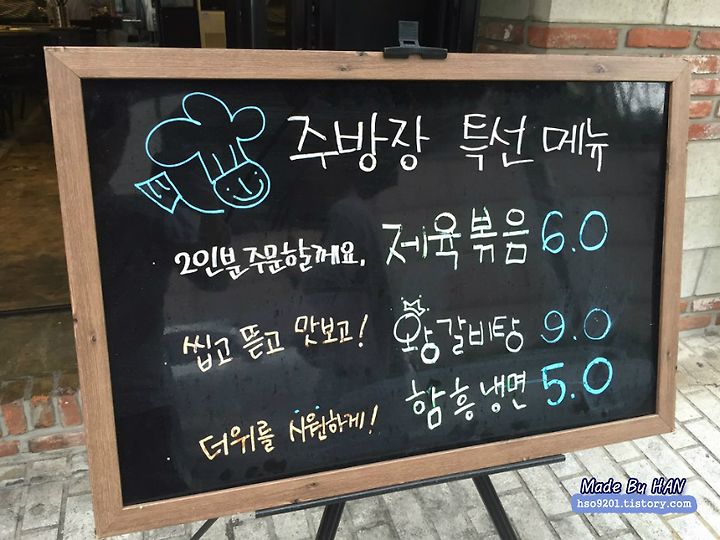 주방장 특선 메뉴
2인분 주문할께요, 제육볶음 6.0
씹고 뜯고 맛보고! 왕갈비탕 9.0
더위를 시원하게! 함흥냉면 5.0
Made By HAN
hso9201.tistory.com